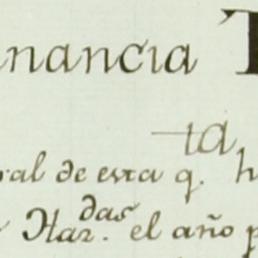 nancia T
ta,
ral de esta q. h
Har.das el año p